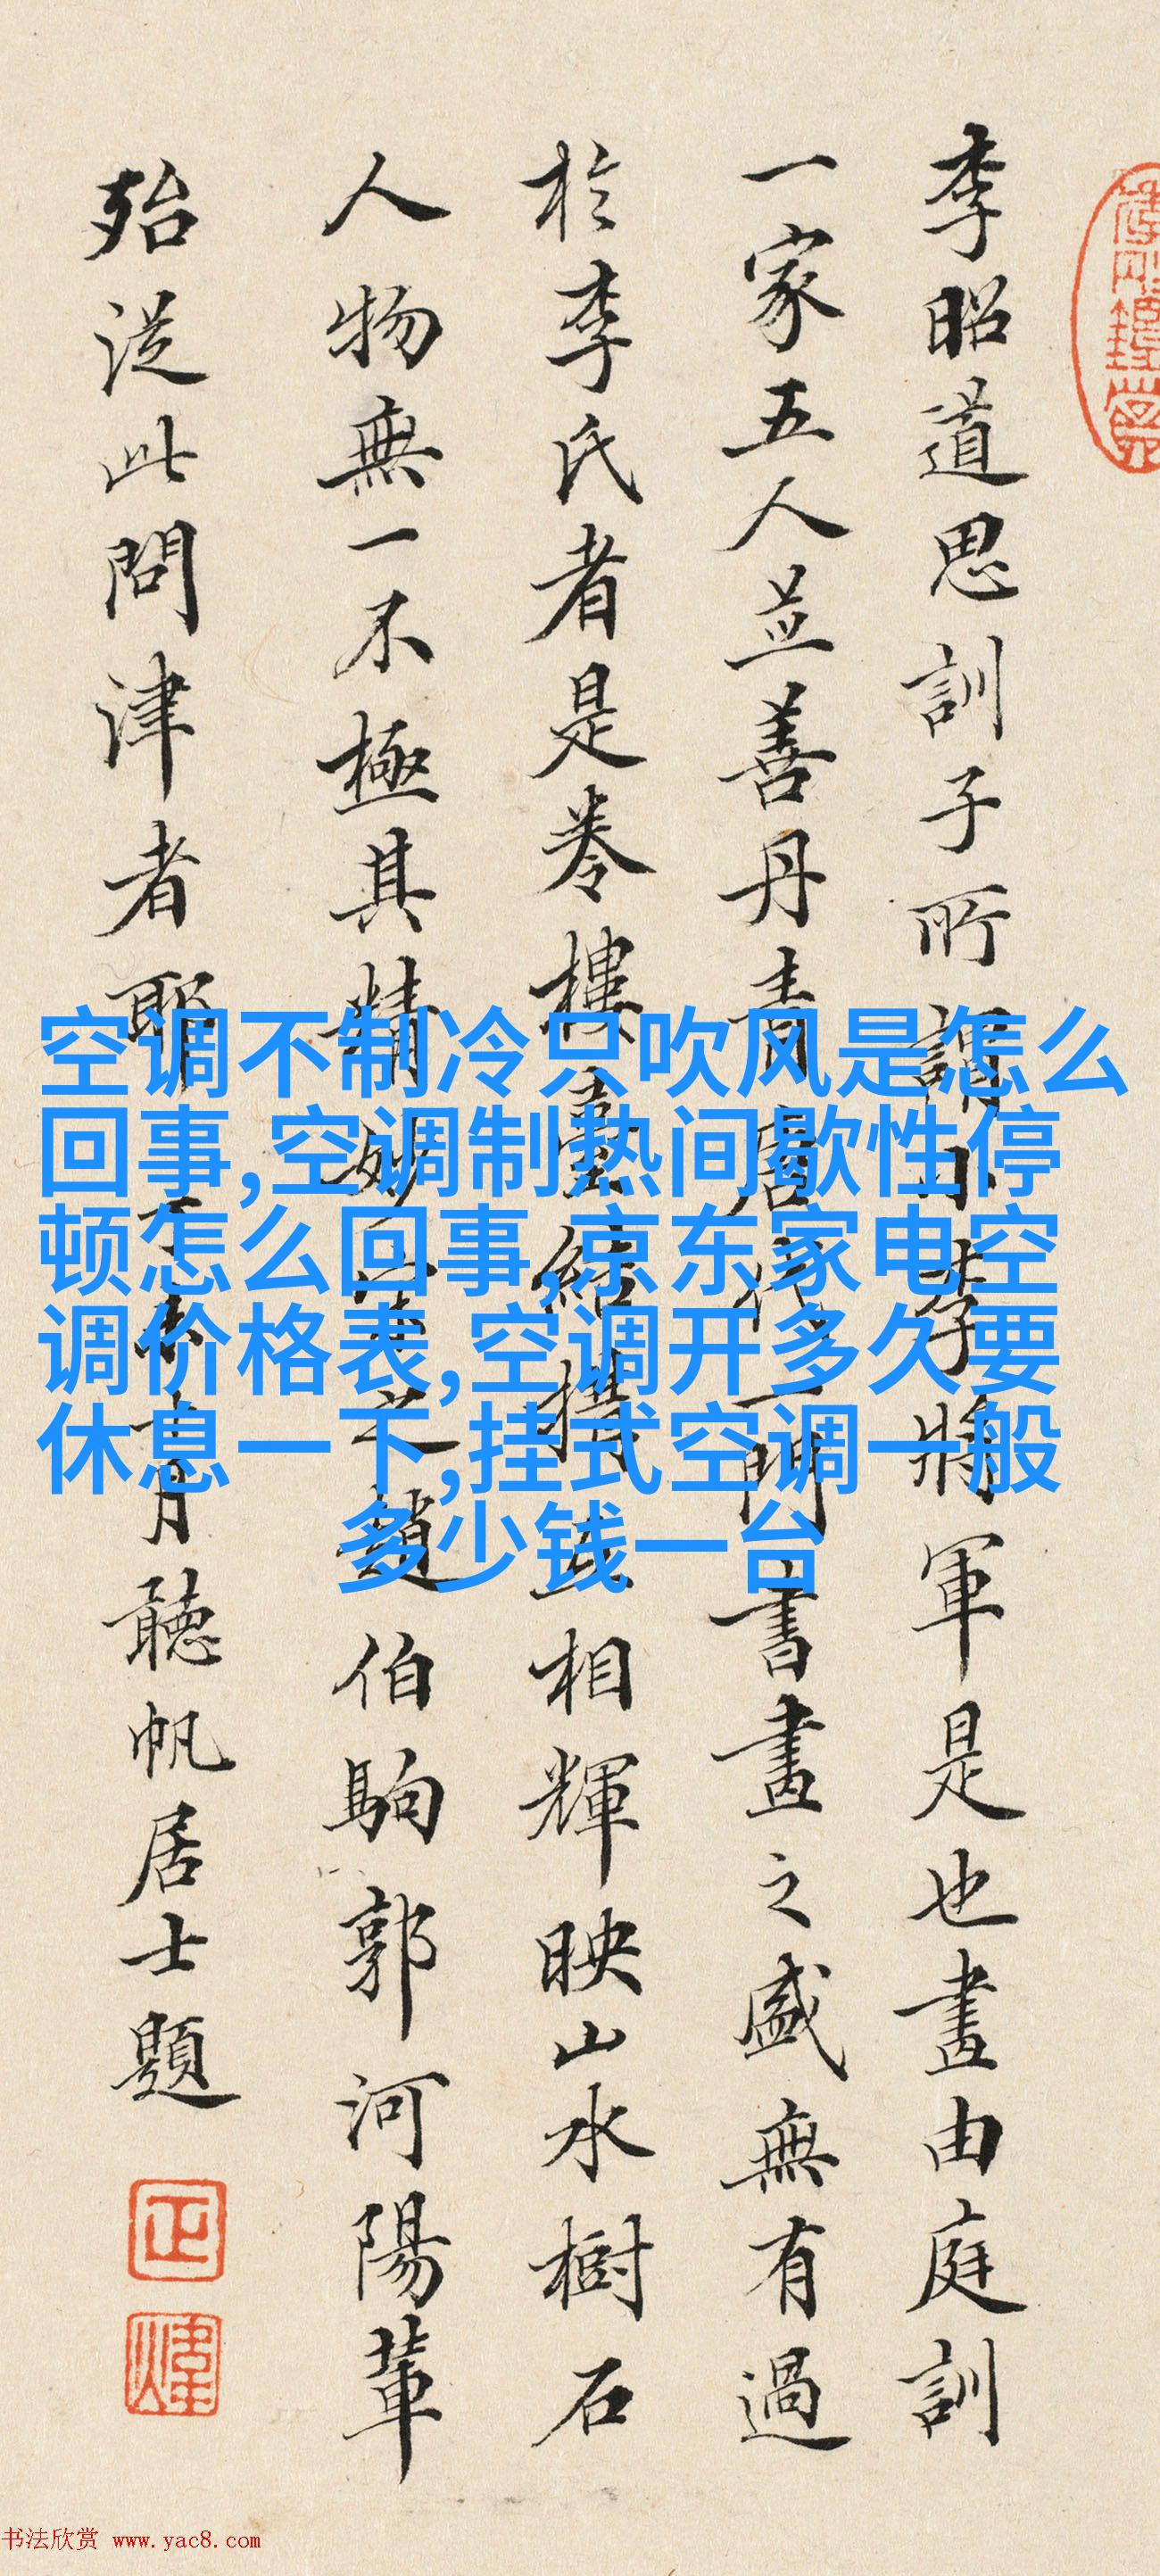 李昭道思訓子所謂小李將軍是也畫由庭訓
一家五人並善丹青唐代一門書畫之盛無有過
於李氏者是卷樓臺結構相輝映山水樹石
人物無一不極其精妙宋之趙伯駒郭河陽輩
殆從此問津者耶月聽帆居士題
正煒
空调不制冷只吹风是怎么
回事,空调制热间歇性停
顿怎么回事,京东家电空
调价格表,空调开多久要
休息一下,挂式空调一般
多少钱一台
书法欣赏 www.yac8.com